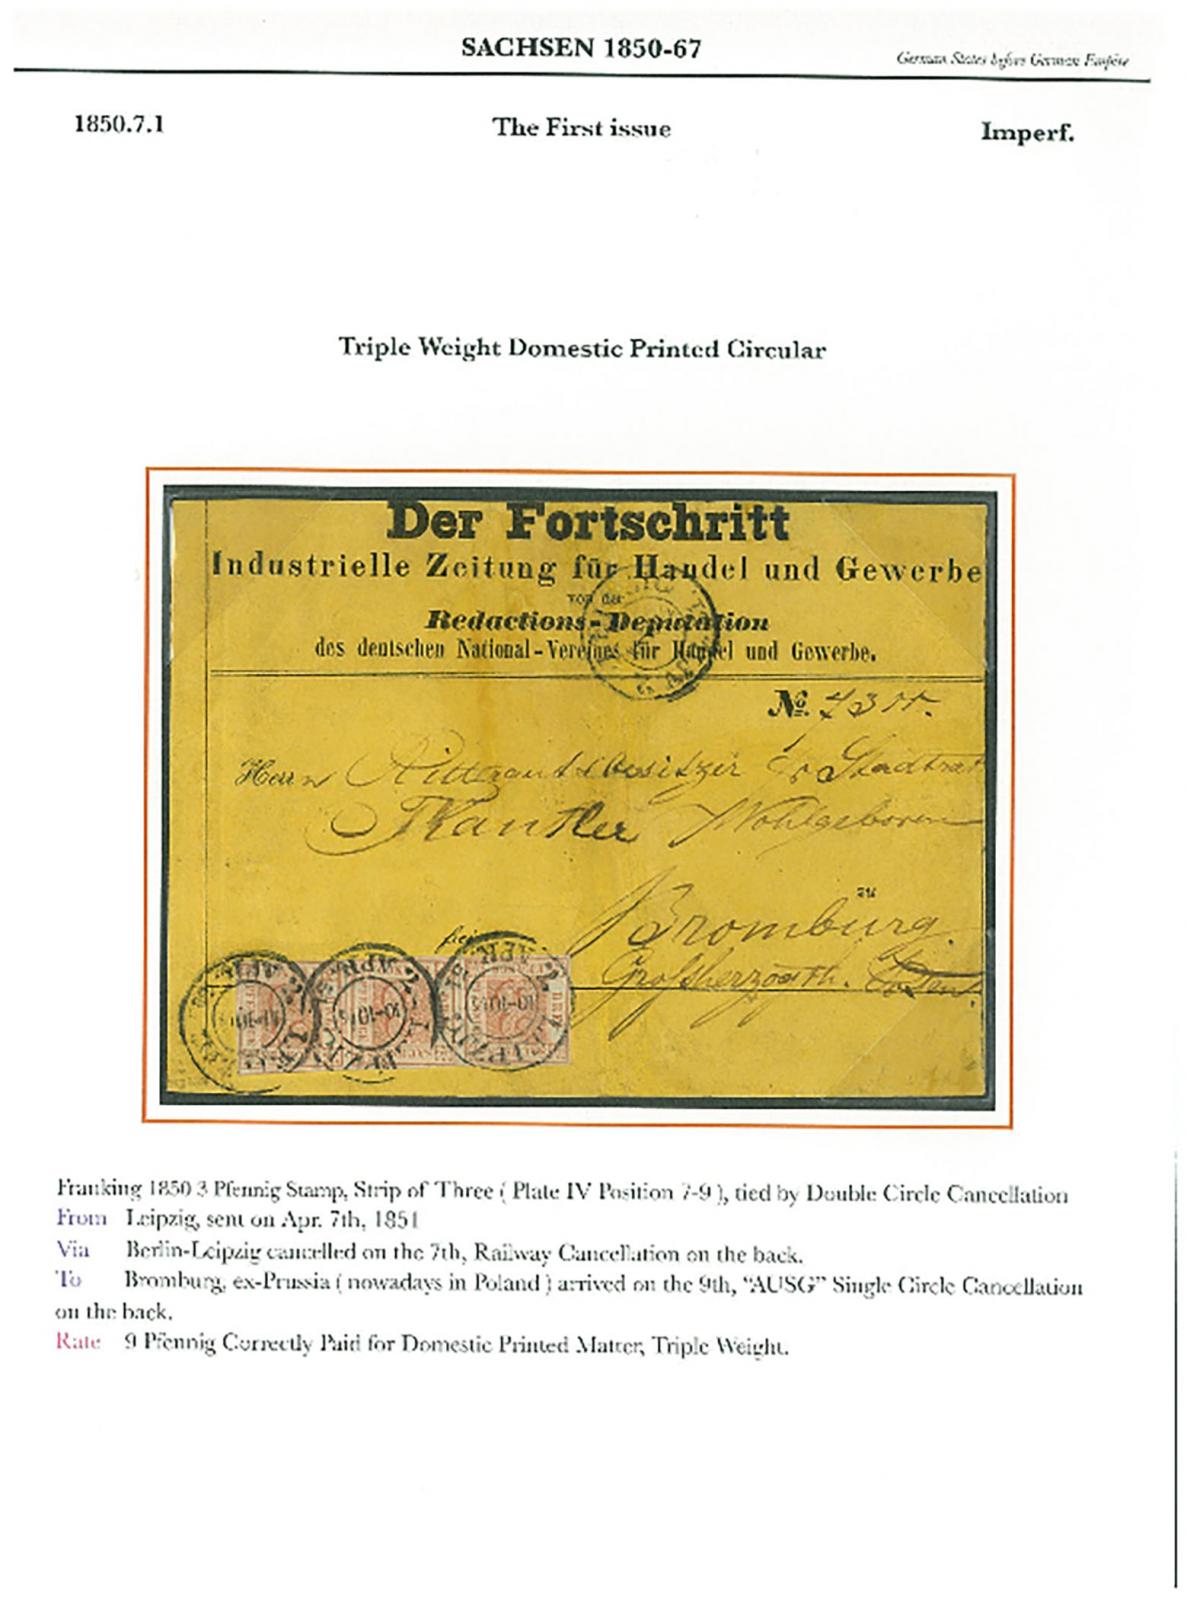 SACHSEN 1850-67
German States before German Empire
1850.7.1 The First issue Imperf.
Triple Weight Domestic Printed Circular
Der Fortschritt
Industrielle Zeitung für Handel und Gewerbe
von der
Redactions-Deputation
des deutschen National-Vereines für Handel und Gewerbe.
No.
Herrn Rittergutsbesitzer Stadtrat
Wohlgeboren
zu
Bromburg.
Grofsherzogth.
frei
LEIPZIG
Franking 1850 3 Pfennig Stamp, Strip of Three ( Plate IV Position 7-9 ), tied by Double Circle Cancellation
From Leipzig, sent on Apr. 7th, 1851
Via Berlin-Leipzig cancelled on the 7th, Railway Cancellation on the back.
To Bromburg, ex-Prussia ( nowadays in Poland ) arrived on the 9th, “AUSG” Single Circle Cancellation
on the back.
Rate 9 Pfennig Correctly Paid for Domestic Printed Matter, Triple Weight.